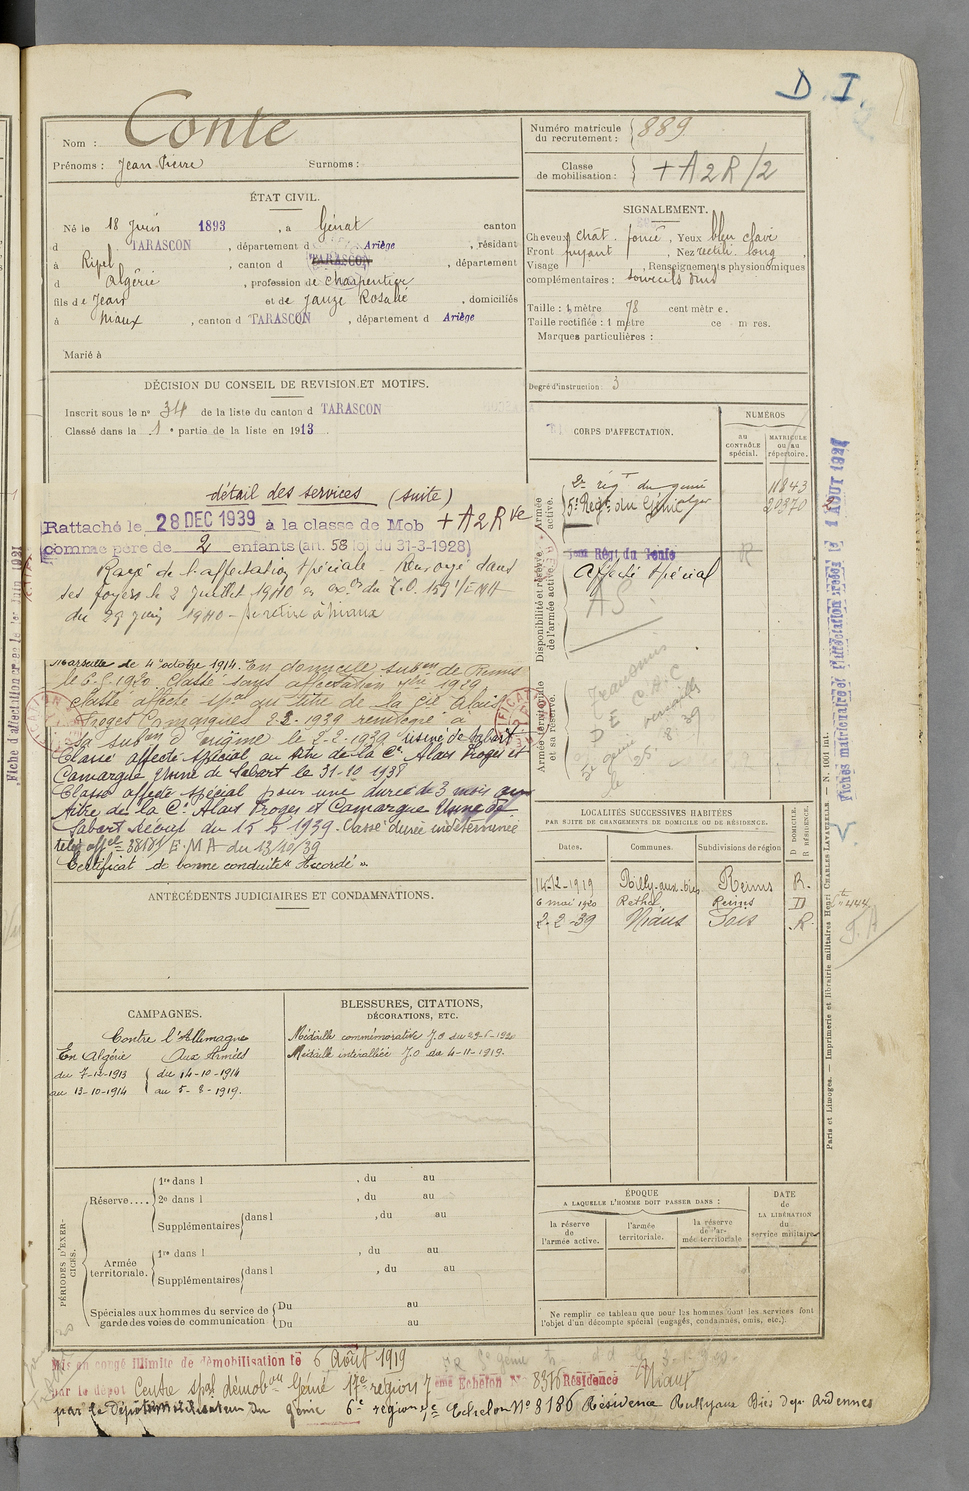 D. I.
Nom : Conte
Prénoms : Jean Pierre Surnoms :
Numéro matricule du recrutement : 889
Classe de mobilisation : + A 2 R /2
ÉTAT CIVIL.
Né le 18 Juin 1893 , à Génat canton
d TARASCON , département d Ariège , résidant
à Ripel , canton d TARASCON , département
d Algérie , profession de charpentier
fils de Jean et de Jauze Rosalie , domiciliés
à Niaux , canton d TARASCON , département d Ariège
Marié à
SIGNALEMENT.
Cheveux chât. foncé , Yeux bleu clair
Front fuyant , Nez rectili. long ,
Visage , Renseignements physionomiques
complémentaires : sourcils
Taille : 1 mètre 78 centimètre.
Taille rectifiée : 1 mètre ce m res.
Marques particulières :
Degré d'instruction : 3
DÉCISION DU CONSEIL DE REVISION ET MOTIFS.
Inscrit sous le no 34 de la liste du canton d TARASCON
Classé dans la 1e partie de la liste en 1913
détail des services (suite)
Rattaché le 28 DEC 1939 à la classe de Mob + A 2 R ve
comme père de 2 enfants (art. 58 loi du 31-3-1928)
Rayé de l'affectation spéciale Renvoyé dans
ses foyers le 2 Juillet 1940
du 29 juin 1940 - Se retire à Niaux
Marseille de 4 octobre 1914. En domicile subon de Reims
le 6-5-1920. Classé sans affectation 1929
Classé affecté spal au titre de la Cie Alais
Froges Camargues 2-2-1939 remboyé à
sa subon d'origine le 2-2-1939 usine de Sabart
Classé affecté spécial au titre de la Cie Alais Froges et
Camargue Usine de Sabart le 31-10 1938
Classé affecté spécial pour une durée de 3 mois au
titre de la C. Alais Froges et Camargue Usine de
Sabart Réduit du 15 5 1939. Classé durée indéterminée
E.M.A du 13/10/39
Certificat de bonne conduite "Accordé".
CORPS D'AFFECTATION.
NUMÉROS
au CONTRÔLE spécial.
MATRICULE ou au répertoire.
Armée active.
2e régt du génie 11843
5e Régt du Génie 20370
Disponibilité et réserve de l'armée active.
Régt du Génie R
Affecté spécial
A S
Armée territoriale et sa réserve.
D E C.A.C
Versailles
5e génie
le 25. 8. 39
LOCALITÉS SUCCESSIVES HABITÉES
PAR SUITE DE CHANGEMENTS DE DOMICILE OU DE RÉSIDENCE.
Dates. Communes. Subdivisions de région D DOMICILE. R RÉSIDENCE.
14-12-1919 Rilly-aux-bies Reims R.
6 mai 1920 Rethel Reims D
2-2-39 Niaux Foix R
ANTÉCÉDENTS JUDICIAIRES ET CONDAMNATIONS.
CAMPAGNES.
Contre l'Allemagne
En Algérie Aux Armées
du 7-12-1913 du 14-10-1914
au 13-10-1914 au 5-8-1919.
BLESSURES, CITATIONS,
DÉCORATIONS, ETC.
Médaille commémorative J.O du 29-6-1920
Médaille interalliée J.O du 4-11-1919.
PÉRIODES D'EXERCICES.
Réserve....
1re dans l , du au
2e dans l , du au
Supplémentaires dans l , du au
Armée territoriale.
1re dans l , du au
Supplémentaires dans l , du au
Spéciales aux hommes du service de garde des voies de communication
Du au
Du au
ÉPOQUE
A LAQUELLE L'HOMME DOIT PASSER DANS :
la réserve de l'armée active.
l'armée territoriale.
la réserve de l'armée territoriale
DATE de LA LIBÉRATION du service militaire.
Ne remplir ce tableau que pour les hommes dont les services font
l'objet d'un décompte spécial (engagés, condamnés, omis, etc.).
Mis en congé illimité de démobilisation le 6 Août 1919
par le dépôt Centre spal démobon Génie 17e région 7
eme Echelon No 8316 Résidence Niaux
par le Dépôt démobilisateur du génie 6e région 7e Echelon No 8186 Résidence Rilly aux Bies dept Ardennes
Paris et Limoges. — Imprimerie et librairie militaires Henri CHARLES LAVAUZELLE. — N. 1001 int.
Fiches matriculaire et d'affectation créées le 1 AOUT 1927
Fiche d'affectation créée le 1er Juin 1921